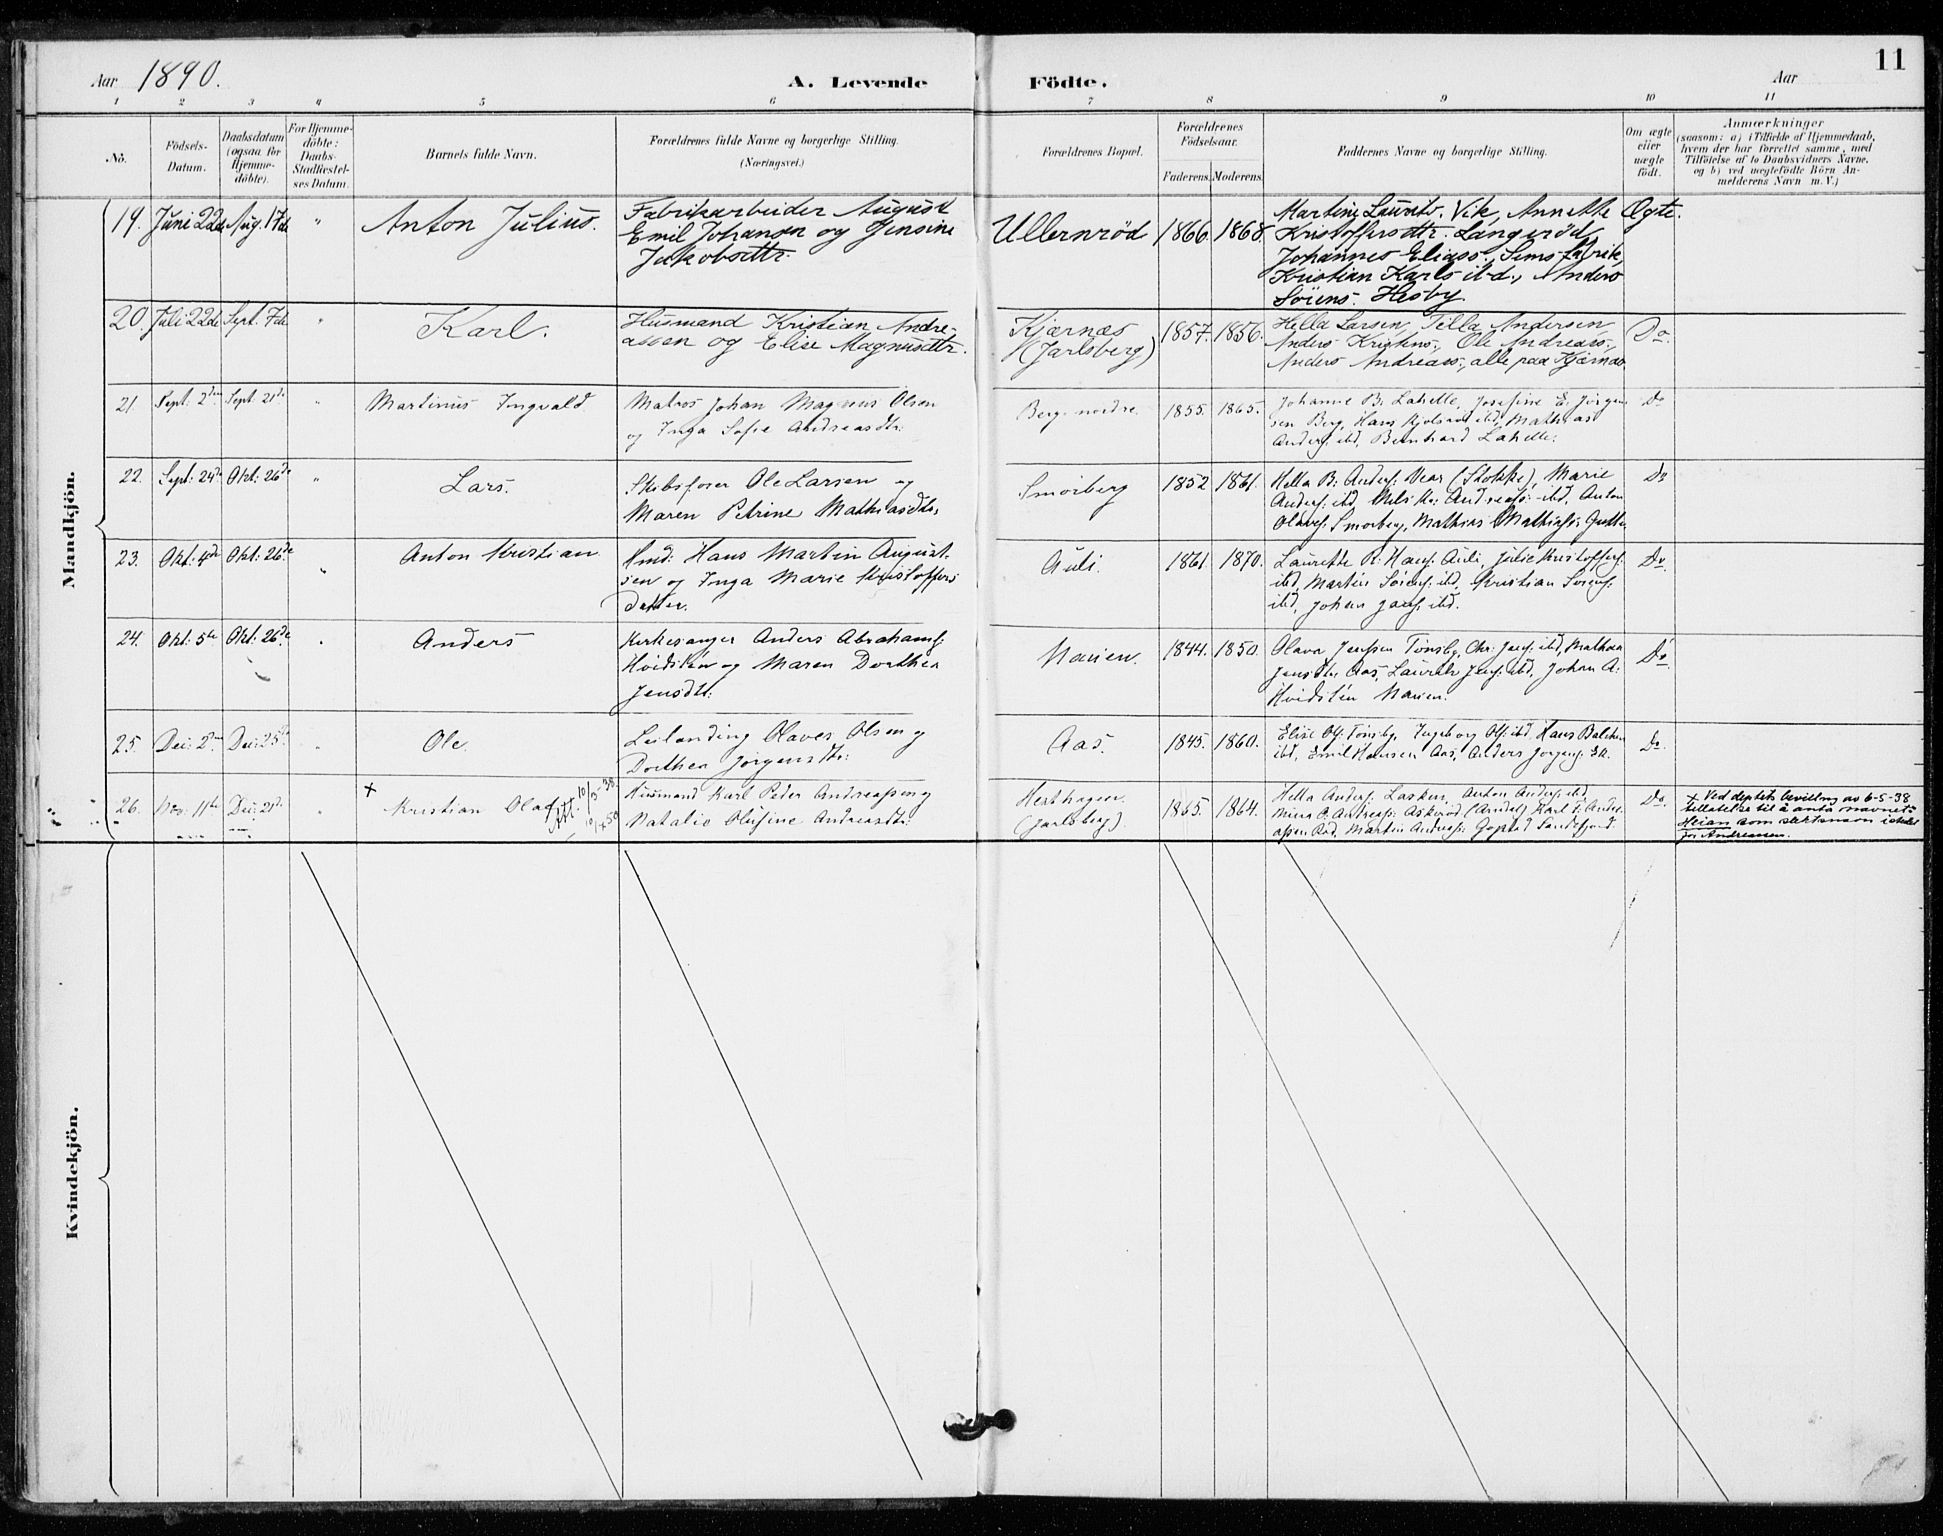 Aar 1890.
A. Levende
Födte.
Aar
11
1 2 3 4 5 6 7 8 9 10 11
No.
Födsels-
Datum.
Daabsdatum
(ogsaa for
Hjemme-
döbte).
For Hjemme-
döbte:
Daabs-
Stadfæstel-
ses Datum.
Barnets fulde Navn.
Forældrenes fulde Navne og borgerlige Stilling.
(Næringsvei.)
Forældrenes Bopæl.
Forældrenes
Födselsaar.
Faderens. Moderens.
Faddernes Navne og borgerlige Stilling.
Om ægte
eller
uægte
födt.
Anmærkninger
(saasom: a) i Tilfælde af Hjemmedaab,
hvem der har forrettet samme, med
Tilföielse af to Daabsvidners Navne,
og b) ved uægtefödte Börn An-
melderens Navn m. V.)
Mandkjön.
19. Juni 22de Aug. 17de " Anton Julius.
Fabrikarbeider August
Emil Johansen og Jensine
Jakobsdttr.
Ullernröd 1866. 1868.
Martine Laurits. Vik, Annette
Kristoffersdttr. Langeröd,
Johannes Eliass., Sems fabrik,
Kristian Karls. ibd., Anders
Sörens. Hesby.
Ægte.
20. Juli 22de Sept. 7de " Karl.
Husmand Kristian Andre-
assen og Elise Magnusdttr.
Kjærnæs
(Jarlsberg)
1857. 1856.
Hella Larsen, Tilla Andersen,
Anders Kristens., Ole Andreass.,
Anders Andreass., alle paa Kjærnæs
Do.
21. Sept. 2den Sept. 21de " Martinus Ingvald.
Matros Johan Magnus Olsen
og Inga Sofie Andreasdtr.
Berg nordre. 1855. 1865.
Johanne B. Lahelle, Josefine E. Jörgen
sen Berg, Hans ibd, Mathias
Anders. ibd, Bernhard Lahelle.
Do
22. Sept. 24de Okt. 26de " Lars.
Skibsförer Ole Larsen og
Maren Petrine Mathiasdtr.
Smörberg 1852 1861.
Hella B. Anders. Vear (Stokke), Marie
Anders. ibd, Nils Kr. Andreass. ibd, Anton
Olavs. Smörberg, Mathias Mathiass.
Do
23. Okt. 4de Okt. 26de " Anton Kristian
Hmd. Hans Martin August-
sen og Inga Marie Kristoffers
datter.
Auli. 1861. 1870.
Laurette R. Hans. Auli, Julie Kristoffers.
ibd, Martin Sörens. ibd, Kristian Sörens.
ibd, Johan Jans. ibd.
Do.
24. Okt. 5te Okt. 26de " Anders
Kirkesanger Anders Abrahams.
Hvidstén og Maren Dorthea
Jensdtr.
Narien. 1844. 1850.
Olava Jenssen Tönsbg, Chr. Jens. ibd, Mathea
Jensdtr Aas, Laurits Jens. ibd, Johan A.
Hvidstén Narien.
Do
25. Dec. 2den Dec. 25de " Ole.
Leilænding Olaves Olsen og
Dorthea Jörgensdtr.
Aas. 1845. 1860.
Elise Ols. Tönsbg, Ingeborg Ols. ibd, Hans Balchen
ibd, Emil Hansen Aas, Anders Jörgens. Ek.
Do.
26. Nov. 11te Dec. 21de " × Kristian Olaf Att. 10/5-38
Husmand Karl Peder Andreassen og
Natalie Olufine Andreasdtr.
Hesthagen.
(Jarlsberg).
1865. 1864.
Hella Anders. Lasken, Anton Anders. ibd,
Mina O. Andreass. Askeröd (Andeb.) Karl F. Andre-
assen Rød, Martin Andreass. Sandefjord.
Do.
× Ved deptets bevillng av 6-5-38
tillatelse til å anta navnet
Heian som slektsnavn istedet
for Andreassen.
Kvindekjön.